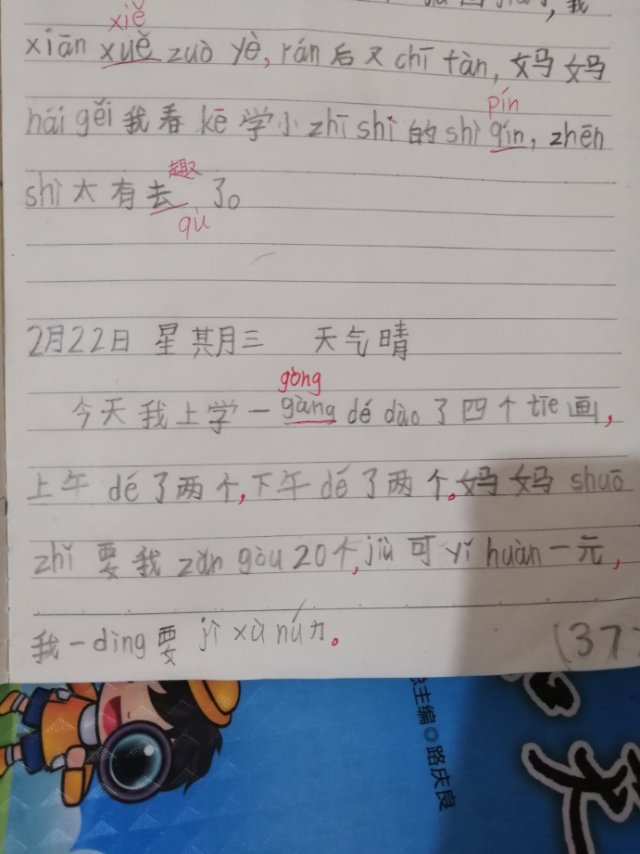 我
xiě
xiān xuě zuò yè, rán后又chī fàn, 妈妈
hái gěi我看kē学小zhī shi的shì qín, zhēn
pín
shì太有去了。
趣
qù
2月22日 星其月三 天气晴
gòng
今天我上学一gàng dé dào了四个tiē画,
上午dé了两个,下午dé了两个。妈妈shuō
zhǐ要我zǎn gòu 20个,jiù可yǐ huàn一元,
我一dìng要jì xù nú力。
(37
主编◎路庆良